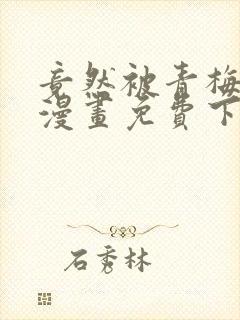 竟然被青梅
漫畫免費下
石秀林